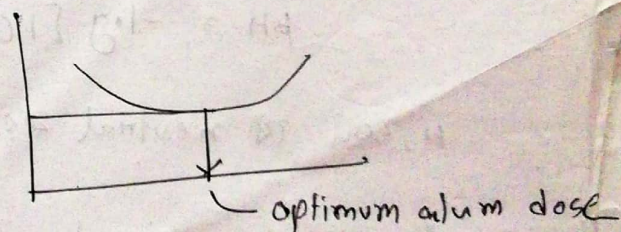 optimum alum dose